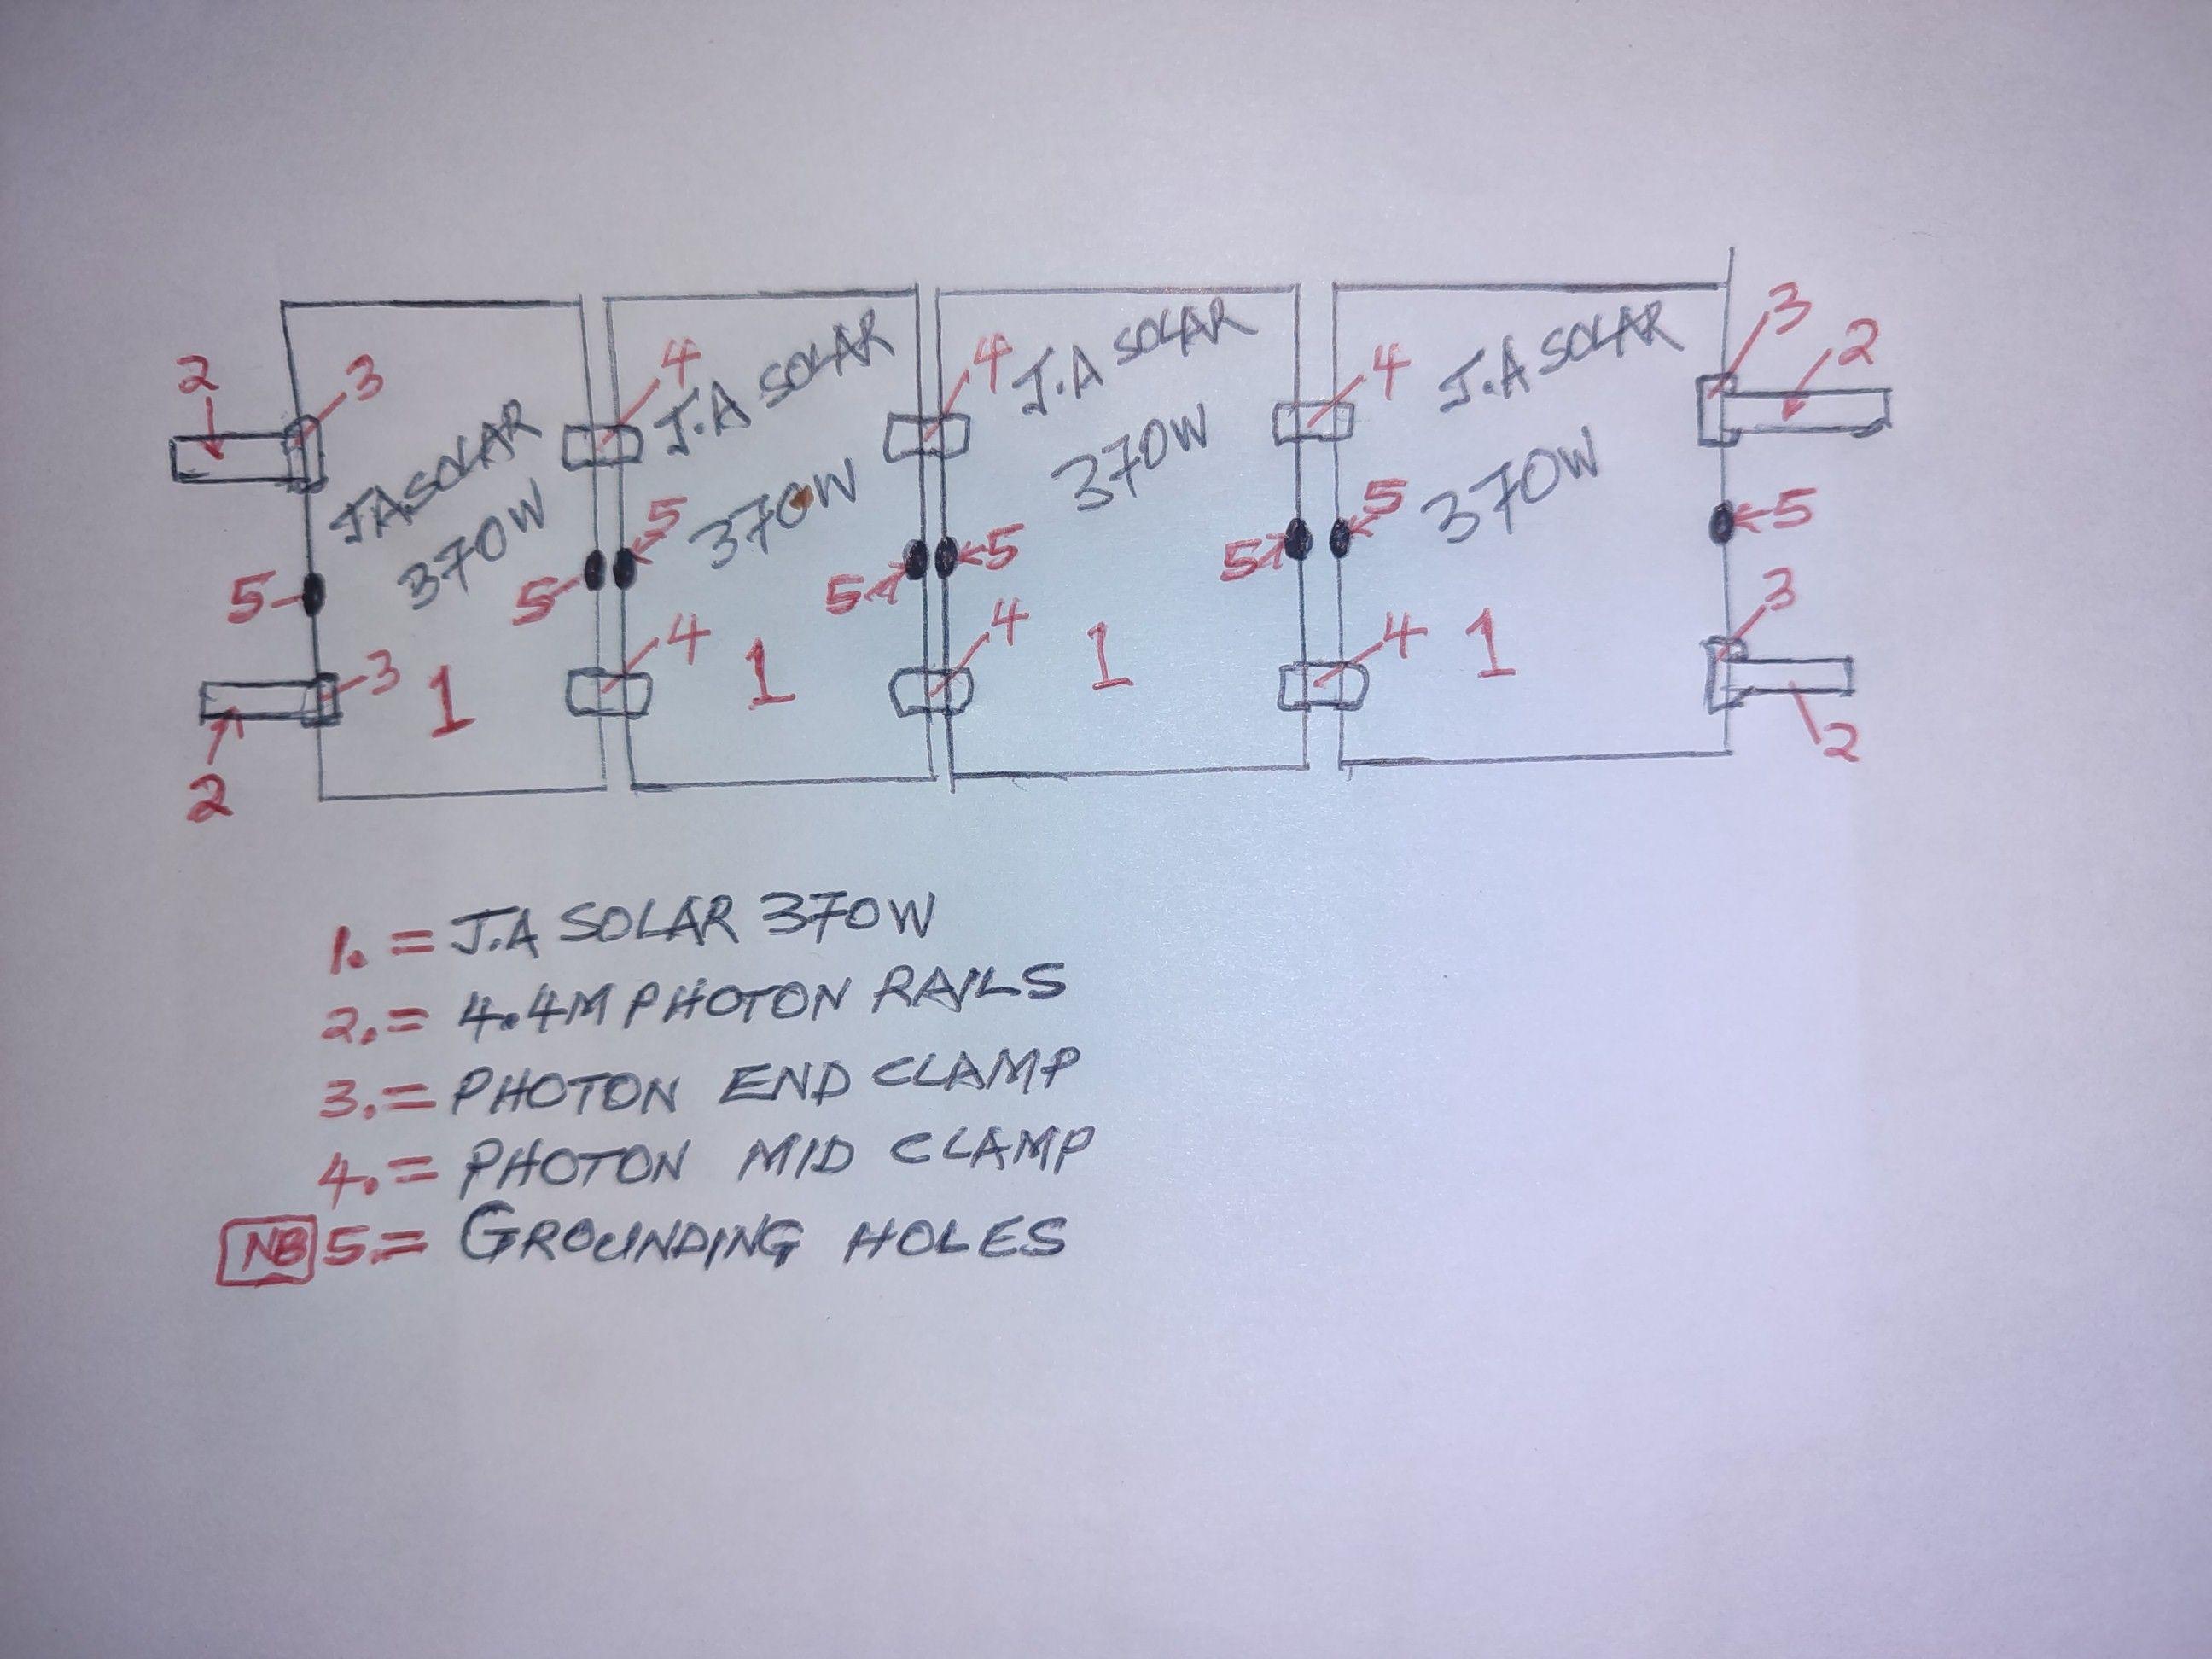 2
3
JA SOLAR
370W
5
3
2
1
4
J.A SOLAR
370W
5
5
4
1
4
J.A SOLAR
370W
5
5
4
1
4
J.A SOLAR
370W
5
5
4
1
3
2
5
3
2
1. = J.A SOLAR 370W
2. = 4.4M PHOTON RAILS
3. = PHOTON END CLAMP
4. = PHOTON MID CLAMP
NB 5. = GROUNDING HOLES